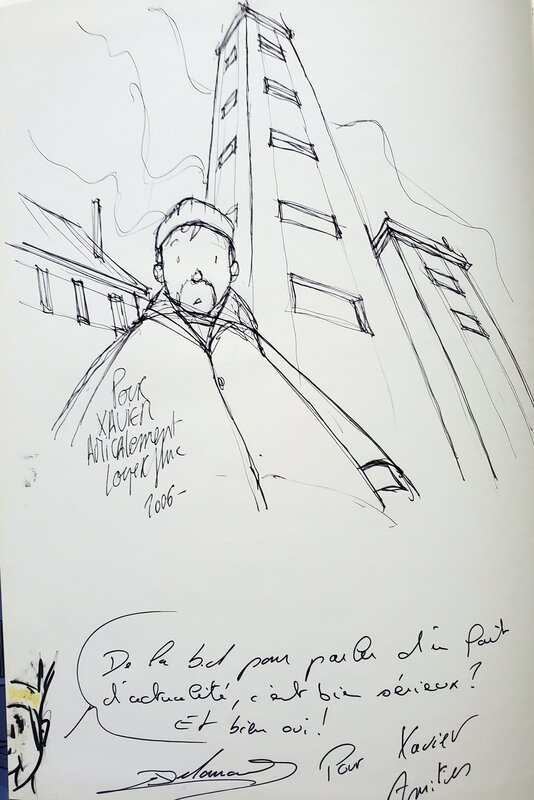 Pour
XAVIER
Amicalement
Loyer JLuc
2006-
De la b.d pour parler d'un fait
d'actualité, c'est bien sérieux ?
Et bien oui !
Pour Xavier
Amitiés